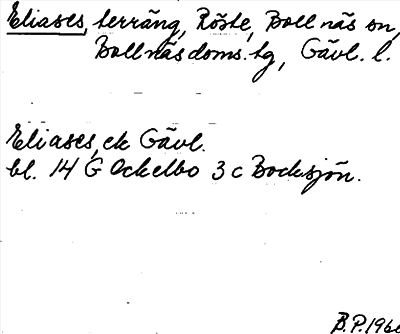 Eliases, terräng, Röste, Bollnäs sn,
Bollnäs doms. hg, Gävl. l.
Eliases, ek Gävl.
bl. 14 G Ockelbo 3 c Bocksjön.
B.P. 196